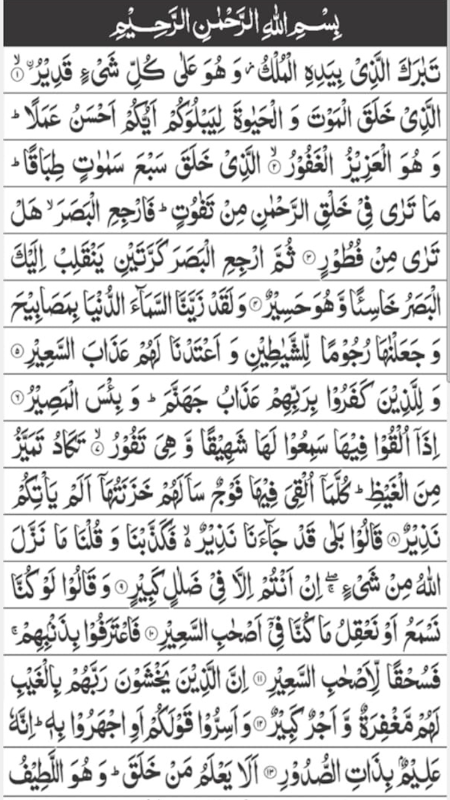 بِسْمِ اللهِ الرَّحْمٰنِ الرَّحِيْمِ
تَبٰرَكَ الَّذِىْ بِيَدِهِ الْمُلْكُ ۡ وَ هُوَ عَلٰى كُلِّ شَىْءٍ قَدِيْرُ ۙ﴿۱﴾
الَّذِىْ خَلَقَ الْمَوْتَ وَ الْحَيٰوةَ لِيَبْلُوَكُمْ اَيُّكُمْ اَحْسَنُ عَمَلًا ؕ
وَ هُوَ الْعَزِيْزُ الْغَفُوْرُ ۙ﴿۲﴾ الَّذِىْ خَلَقَ سَبْعَ سَمٰوٰتٍ طِبَاقًا ؕ
مَا تَرٰى فِىْ خَلْقِ الرَّحْمٰنِ مِنْ تَفٰوُتٍ ؕ فَارْجِعِ الْبَصَرَ ۙ هَلْ
تَرٰى مِنْ فُطُوْرٍ ﴿۳﴾ ثُمَّ ارْجِعِ الْبَصَرَ كَرَّتَيْنِ يَنْقَلِبْ اِلَيْكَ
الْبَصَرُ خَاسِئًا وَّ هُوَ حَسِيْرٌ ﴿۴﴾ وَ لَقَدْ زَيَّنَّا السَّمَآءَ الدُّنْيَا بِمَصَابِيْحَ
وَ جَعَلْنٰهَا رُجُوْمًا لِّلشَّيٰطِيْنِ وَ اَعْتَدْنَا لَهُمْ عَذَابَ السَّعِيْرِ ﴿۵﴾
وَ لِلَّذِيْنَ كَفَرُوْا بِرَبِّهِمْ عَذَابُ جَهَنَّمَ ؕ وَ بِئْسَ الْمَصِيْرُ ﴿۶﴾
اِذَاۤ اُلْقُوْا فِيْهَا سَمِعُوْا لَهَا شَهِيْقًا وَّ هِىَ تَفُوْرُ ۙ﴿۷﴾ تَكَادُ تَمَيَّزُ
مِنَ الْغَيْظِ ؕ كُلَّمَاۤ اُلْقِىَ فِيْهَا فَوْجٌ سَاَلَهُمْ خَزَنَتُهَاۤ اَلَمْ يَاْتِكُمْ
نَذِيْرٌ ﴿۸﴾ قَالُوْا بَلٰى قَدْ جَآءَنَا نَذِيْرٌ ۙ۬ فَكَذَّبْنَا وَ قُلْنَا مَا نَزَّلَ
اللهُ مِنْ شَىْءٍ ۚۖ اِنْ اَنْتُمْ اِلَّا فِىْ ضَلٰلٍ كَبِيْرٍ ﴿۹﴾ وَ قَالُوْا لَوْ كُنَّا
نَسْمَعُ اَوْ نَعْقِلُ مَا كُنَّا فِىْۤ اَصْحٰبِ السَّعِيْرِ ﴿۱۰﴾ فَاعْتَرَفُوْا بِذَنْۢبِهِمْ ۚ
فَسُحْقًا لِّاَصْحٰبِ السَّعِيْرِ ﴿۱۱﴾ اِنَّ الَّذِيْنَ يَخْشَوْنَ رَبَّهُمْ بِالْغَيْبِ
لَهُمْ مَّغْفِرَةٌ وَّ اَجْرٌ كَبِيْرٌ ﴿۱۲﴾ وَ اَسِرُّوْا قَوْلَكُمْ اَوِ اجْهَرُوْا بِهٖ ؕ اِنَّهٗ
عَلِيْمٌۢ بِذَاتِ الصُّدُوْرِ ﴿۱۳﴾ اَلَا يَعْلَمُ مَنْ خَلَقَ ؕ وَ هُوَ اللَّطِيْفُ